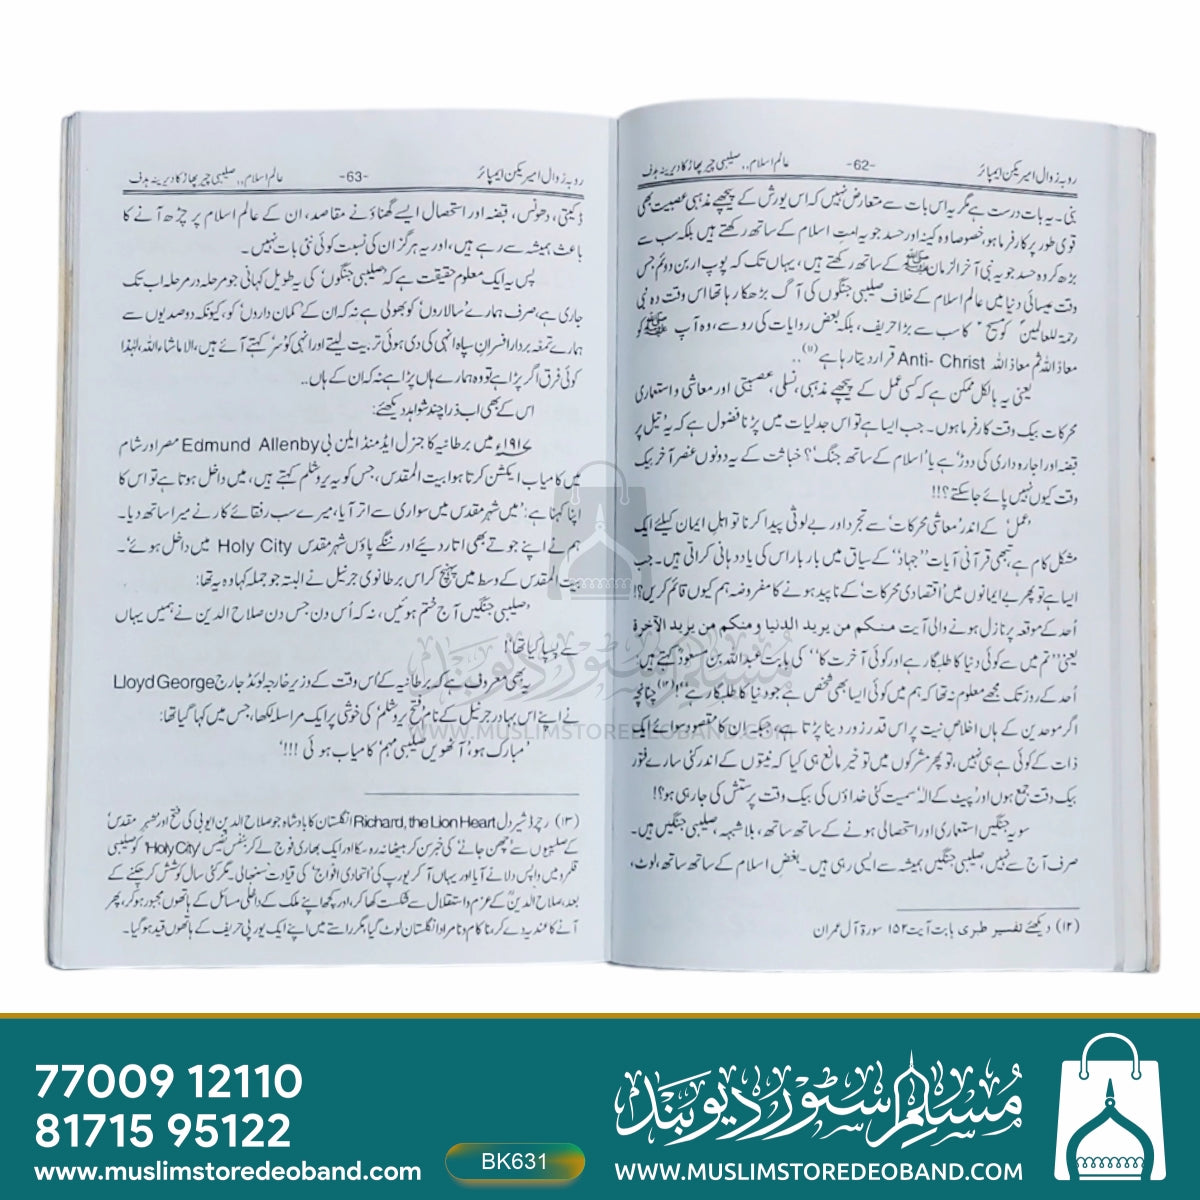 روبہ زوال امیریکن ایمپائر -62- عالم اسلام.. صلیبی چیر پھاڑ کا دیرینہ ہدف
بنی۔ یہ بات درست ہے مگر یہ اس بات سے متعارض نہیں کہ اس یورش کے پیچھے مذہبی عصبیت بھی
قوی طور پر کارفرما ہو، خصوصاً وہ کینہ اور حسد جو یہ امتِ اسلام کے ساتھ رکھتے ہیں بلکہ سب سے
بڑھ کر وہ حسد جو یہ نبی آخر الزمان ﷺ کے ساتھ رکھتے ہیں، یہاں تک کہ پوپ اربن دوئم جس
وقت عیسائی دنیا میں عالم اسلام کے خلاف صلیبی جنگوں کی آگ بڑھکا رہا تھا اس وقت وہ نبی
رحمۃ للعالمین کو مسیح کا سب سے بڑا حریف، بلکہ بعض روایات کی رو سے، وہ آپ ﷺ کو
معاذ اللہ ثم معاذ اللہ Anti- Christ قرار دیتا رہا ہے (۱۱)..
یعنی یہ بالکل ممکن ہے کہ کسی عمل کے پیچھے مذہبی، نسلی، عصبیتی اور معاشی و استعماری
محرکات بیک وقت کارفرما ہوں۔ جب ایسا ہے تو اس جدلیات میں پڑنا فضول ہے کہ یہ ’تیل پر
قبضہ اور اجارہ داری کی دوڑ‘ ہے یا ’اسلام کے ساتھ جنگ‘؟ خباثت کے یہ دونوں عنصر آخر بیک
وقت کیوں نہیں پائے جا سکتے؟!!
’عمل‘ کے اندر ’معاشی محرکات‘ سے تجرد اور بے لوثی پیدا کرنا تو اہل ایمان کیلئے ایک
مشکل کام ہے، تبھی قرآنی آیات ’’جہاد‘‘ کے سیاق میں بار بار اس کی یاد دہانی کراتی ہیں۔ جب
ایسا ہے تو پھر بے ایمانوں میں ’اقتصادی محرکات‘ کے ناپید ہونے کا مفروضہ ہم کیوں قائم کریں؟!
اُحد کے موقعہ پر نازل ہونے والی آیت منکم من یرید الدنیا و منکم من یرید الآخرة
یعنی ’’تم میں سے کوئی دنیا کا طلبگار ہے اور کوئی آخرت کا‘‘ کی بابت عبداللہ بن مسعودؓ کہتے ہیں:
اُحد کے روز تک مجھے معلوم نہ تھا کہ ہم میں کوئی ایسا بھی شخص ہے جو دنیا کا طلبگار ہے‘‘! (۱۲) چنانچہ
اگر موحدین کے ہاں اخلاصِ نیت پر اس قدر زور دینا پڑتا ہے جبکہ ان کا مقصود سوائے ایک
ذات کے کوئی ہے ہی نہیں، تو پھر مشرکوں میں تو خیر مانع ہی کیا کہ نیتوں کے اندر کئی سارے فتور
بیک وقت جمع ہوں اور ’پیٹ‘ کے الٰہ سمیت کئی خداؤں کی بیک وقت پرستش کی جا رہی ہو؟!
سو یہ جنگیں استعماری اور استحصالی ہونے کے ساتھ ساتھ، بلاشبہہ، صلیبی جنگیں ہیں۔
صرف آج سے نہیں، صلیبی جنگیں ہمیشہ سے ایسی رہی ہیں۔ بغضِ اسلام کے ساتھ ساتھ، لوٹ،
(۱۲) دیکھئے تفسیر طبری بابت آیت ۱۵۲ سورۃ آل عمران
روبہ زوال امیریکن ایمپائر -63- عالم اسلام.. صلیبی چیر پھاڑ کا دیرینہ ہدف
ڈکیتی، دھونس، قبضہ اور استحصال ایسے گھناؤنے مقاصد، ان کے عالم اسلام پر چڑھ آنے کا
باعث ہمیشہ سے رہے ہیں، اور یہ ہرگز ان کی نسبت کوئی نئی بات نہیں۔
پس یہ ایک معلوم حقیقت ہے کہ ’صلیبی جنگوں‘ کی یہ طویل کہانی جو مرحلہ در مرحلہ اب تک
جاری ہے، صرف ہمارے ’سالاروں‘ کو بھولی ہے نہ کہ ان کے ’کمان داروں‘ کو، کیونکہ دو صدیوں سے
ہمارے تمغہ بردار افسرانِ سپاہ انہی کی دی ہوئی تربیت لیتے اور انہی کو ’سر‘ کہتے آئے ہیں، الا ماشاء اللہ، لہٰذا
کوئی فرق اگر پڑا ہے تو وہ ہمارے ہاں پڑا ہے نہ کہ ان کے ہاں..
اس کے بھی اب ذرا چند شواہد دیکھئے:
۱۹۱۷ء میں برطانیہ کا جنرل ایڈمنڈ ایلن بی Edmund Allenby مصر اور شام
میں کامیاب ایکشن کرتا ہوا بیت المقدس، جس کو یہ یروشلم کہتے ہیں، میں داخل ہوتا ہے تو اس کا
اپنا کہنا ہے: ’میں شہر مقدس میں سواری سے اتر آیا، میرے سب رفقائے کار نے میرا ساتھ دیا۔
ہم نے اپنے جوتے بھی اتار دیئے اور ننگے پاؤں شہر مقدس Holy City میں داخل ہوئے‘۔
بیت المقدس کے وسط میں پہنچ کر اس برطانوی جرنیل نے البتہ جو جملہ کہا وہ یہ تھا:
’صلیبی جنگیں آج ختم ہوئیں، نہ کہ اُس دن جس دن صلاح الدین نے ہمیں یہاں
سے پسپا کیا تھا‘!
یہ بھی معروف ہے کہ برطانیہ کے اُس وقت کے وزیر خارجہ لوئڈ جارج Lloyd George
نے اپنے اس بہادر جرنیل کے نام ’فتح یروشلم‘ کی خوشی پر ایک مراسلہ لکھا، جس میں کہا گیا تھا:
’مبارک ہو، آٹھویں صلیبی مہم‘ کامیاب ہوئی !!!‘
(۱۳) رچرڈ شیر دل Richard, the Lion Heart انگلستان کا بادشاہ جو صلاح الدین ایوبی کی فتح اور ’شہر مقدس‘
کے صلیبیوں سے ’چھن جانے‘ کی خبر سن کر بیٹھا نہ رہ سکا اور ایک بھاری فوج لے کر بنفس نفیس ’Holy City‘ کو صلیبی
قلمرو میں واپس دلانے آیا اور یہاں آ کر یورپ کی ’اتحادی افواج‘ کی قیادت سنبھالی مگر کئی سال کوشش کر چکنے کے
بعد، صلاح الدینؒ کے عزم و استقلال سے شکست کھا کر، اور کچھ اپنے ملک کے داخلی مسائل کے ہاتھوں مجبور ہو کر، پھر
آنے کا عندیہ دے کر ناکام و نامراد انگلستان لوٹ گیا، مگر راستے میں اپنے ایک یورپی حریف کے ہاتھوں قید ہو گیا۔
مسلم سٹور دیوبند
WWW.MUSLIMSTOREDEOBAND.COM
77009 12110
81715 95122
www.muslimstoredeoband.com
BK631
مسلم سٹور دیوبند
WWW.MUSLIMSTOREDEOBAND.COM